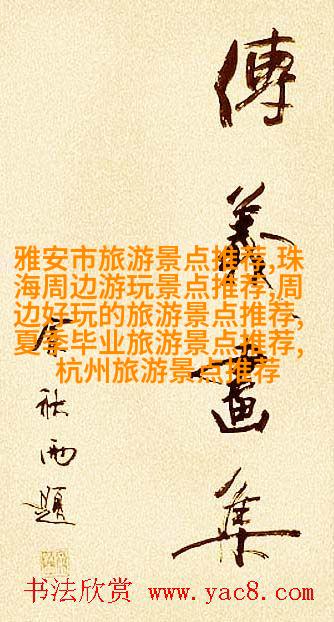 畫集
秋雨題
雅安市旅游景点推荐,珠
海周边游玩景点推荐,周
边好玩的旅游景点推荐,
夏季毕业旅游景点推荐,
杭州旅游景点推荐
书法欣赏 www.yac8.com